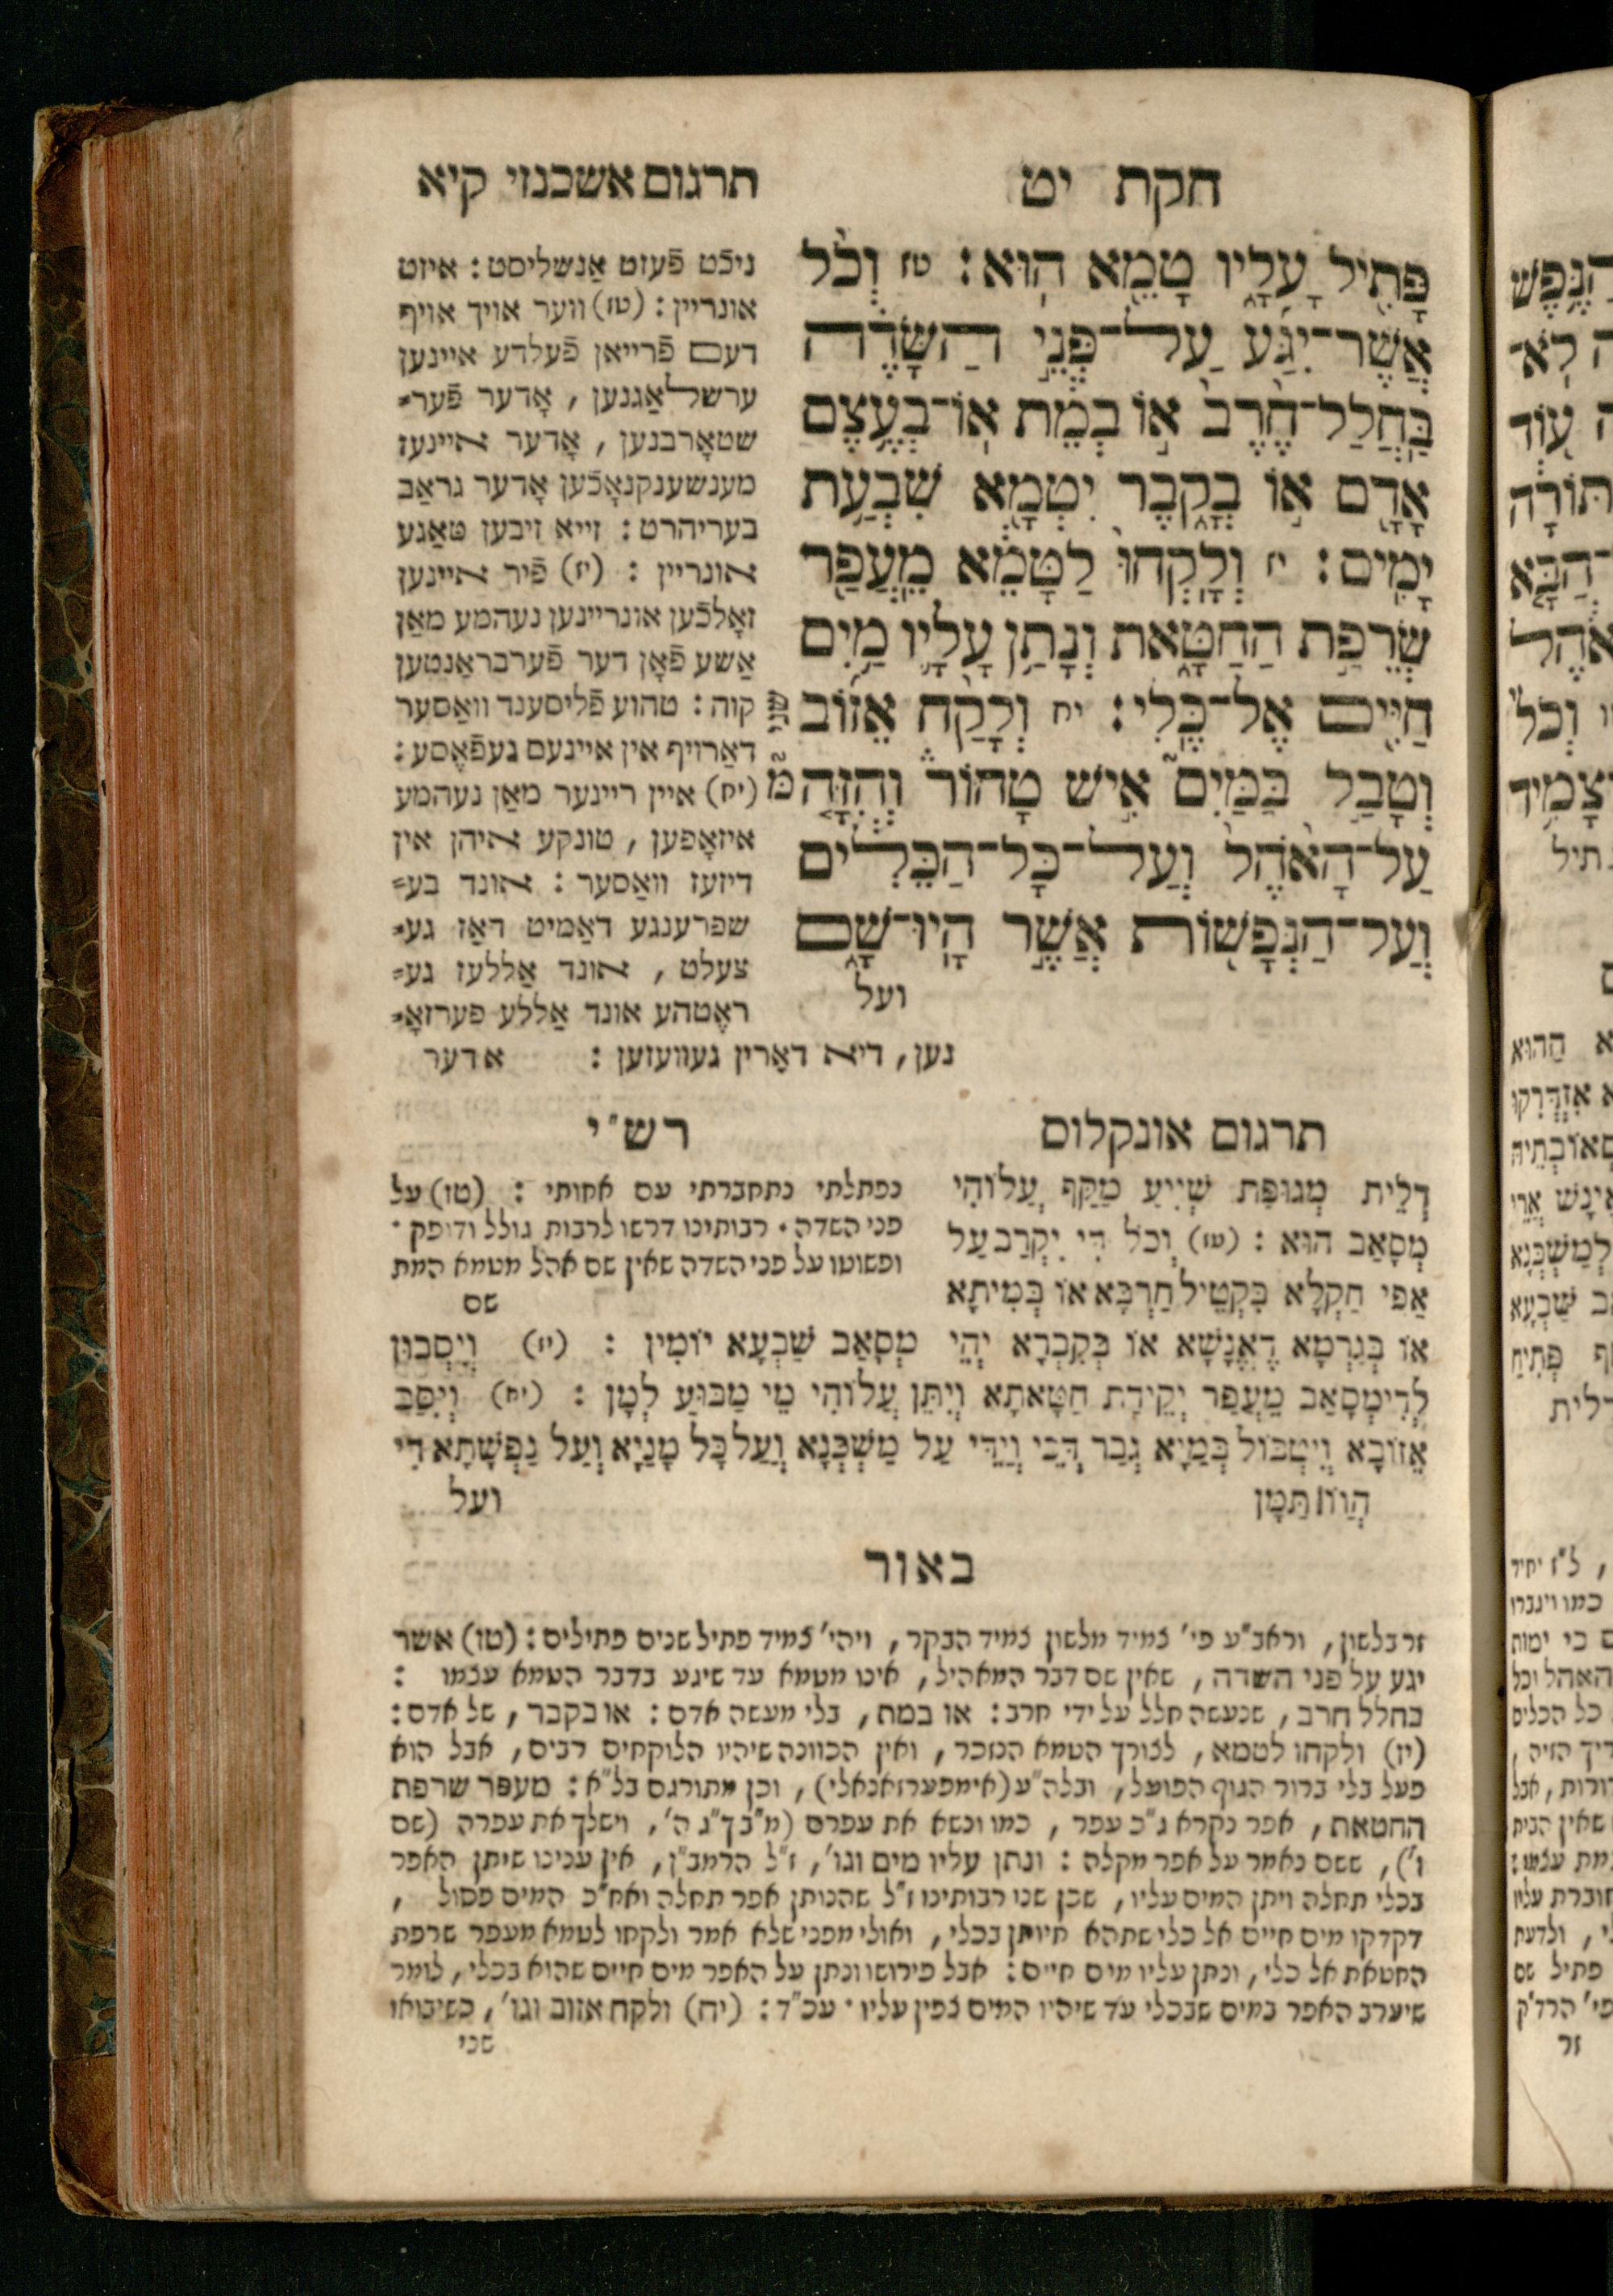 חקת יט
תרגום אשכנזי קיא
פָּתִ֖יל עָלָ֑יו טָמֵ֖א הֽוּא׃ טז וְכֹ֨ל
אֲשֶׁר־יִגַּ֜ע עַל־פְּנֵ֣י הַשָּׂדֶ֗ה
בַּֽחֲלַל־חֶ֨רֶב֙ א֣וֹ בְמֵ֔ת אֽוֹ־בְעֶ֥צֶם
אָדָ֖ם א֣וֹ בְקָ֑בֶר יִטְמָ֖א שִׁבְעַ֥ת
יָמִֽים׃ יז וְלָֽקְחוּ֙ לַטָּמֵ֔א מֵֽעֲפַ֖ר
שְׂרֵפַ֣ת הַֽחַטָּ֑את וְנָתַ֥ן עָלָ֛יו מַ֥יִם
חַיִּ֖ים אֶל־כֶּֽלִי׃ יח וְלָקַ֨ח אֵז֜וֹב
שני
וְטָבַ֣ל בַּמַּ֘יִם֮ אִ֣ישׁ טָהוֹר֒ וְהִזָּ֤ה
עַל־הָאֹ֨הֶל֙ וְעַל־כָּל־הַכֵּלִ֔ים
וְעַל־הַנְּפָשׁ֖וֹת אֲשֶׁ֣ר הָֽיוּ־שָׁ֑ם
ועל
ניכֿט פֿעזט אַנשליסט: איזט
אונריין: (טז) ווער אויך אויף
דעם פֿרייאן פֿעלדע איינען
ערשלאַגנען, אָדער פֿער⸗
שטאָרבנען, אָדער איינעז
מענשענקנאָכֿען אָדער גראַב
בעריהרט: זייא זיבען טאַגע
אונריין: (יז) פֿיר איינען
זאָלכֿען אונריינען נעהמע מאַן
אַשע פֿאָן דער פֿערבראַנטען
קוה: טהוע פֿליסענד וואַסער
דאַרויף אין איינעם געפֿאֶסע:
(יח) איין ריינער מאַן נעהמע
איזאָפען, טונקע איהן אין
דיזעז וואַסער: אונד בע⸗
שפרענגע דאַמיט דאַז גע⸗
צעלט, אונד אַללעז גע⸗
ראֶטהע אונד אַללע פערזאָ⸗
נען, דיא דאַרין געוועזען: אדער
תרגום אונקלוס
דְלֵית מְגוּפַת שְׁיִיעַ מַקַף עֲלוֹהִי
מְסָאַב הוּא: (טז) וְכֹל דִי יִקְרַב עַל
אַפֵּי חַקְלָא בִּקְטֵיל חַרְבָּא אוֹ בְּמִיתָא
אוֹ בְּגַרְמָא דֶאֱנָשָׁא אוֹ בְּקַבְרָא יְהֵי מְסָאַב שַׁבְעָא יוֹמִין: (יז) וְיִסְבוּן
לְדִימְסָאַב מֵעֲפַר יְקֵידַת חַטָּאתָא וְיִתֵּן עֲלוֹהִי מֵי מַבּוּעַ לְמָן: (יח) וְיִסַּב
אֵזוֹבָא וְיִטְבּוֹל בְּמַיָא גְבַר דְּכֵי וְיַדֵּי עַל מַשְׁכְּנָא וְעַל כָּל מָנַיָא וְעַל נַפְשָׁתָא דִי
הֲווֹ תַּמָּן ועל
רש"י
נפתלתי נתחברתי עם אחותי: (טז) על
פני השדה. רבותינו דרשו לרבות גולל ודופק.
ופשוטו על פני השדה שאין שם אהל מטמא המת
שם
באור
זר בלשון, וראב"ע פי' צמיד מלשון צמיד הבקר, ויהי' צמיד פתיל שנים פתילים: (טז) אשר
יגע על פני השדה, שאין שם דבר המאהיל, אינו מטמא עד שיגע בדבר הטמא עצמו:
בחלל חרב, שנעשה חלל על ידי חרב: או במת, בלי מעשה אדם: או בקבר, של אדם:
(יז) ולקחו לטמא, לצורך הטמא הנזכר, ואין הכוונה שיהיו הלוקחים רבים, אבל הוא
פעל בלי ברור הגוף הפועל, ובלה"ע (אימפערזאנאלי), וכן מתורגם בל"א: מעפר שרפת
החטאת, אפר נקרא ג"כ עפר, כמו ונשא את עפרם (מ"ב ך"ג ה', וישלך את עפרה (שם
ו'), ששם נאמר על אפר מקלה: ונתן עליו מים וגו', ז"ל הרמב"ן, אין ענינו שיתן האפר
בכלי תחלה ויתן המים עליו, שכן שנו רבותינו ז"ל שהנותן אפר תחלה ואח"כ המים פסול,
דקדקו מים חיים אל כלי שתהא חיותן בכלי, ואולי מפני שלא אמר ולקחו לטמא מעפר שרפת
החטאת אל כלי, ונתן עליו מים חיים: אבל פירושו ונתן על האפר מים חיים שהוא בכלי, לומר
שיערב האפר במים שבכלי עד שיהיו המים צפין עליו. עכ"ד: (יח) ולקח אזוב וגו', כשיבואו
שני